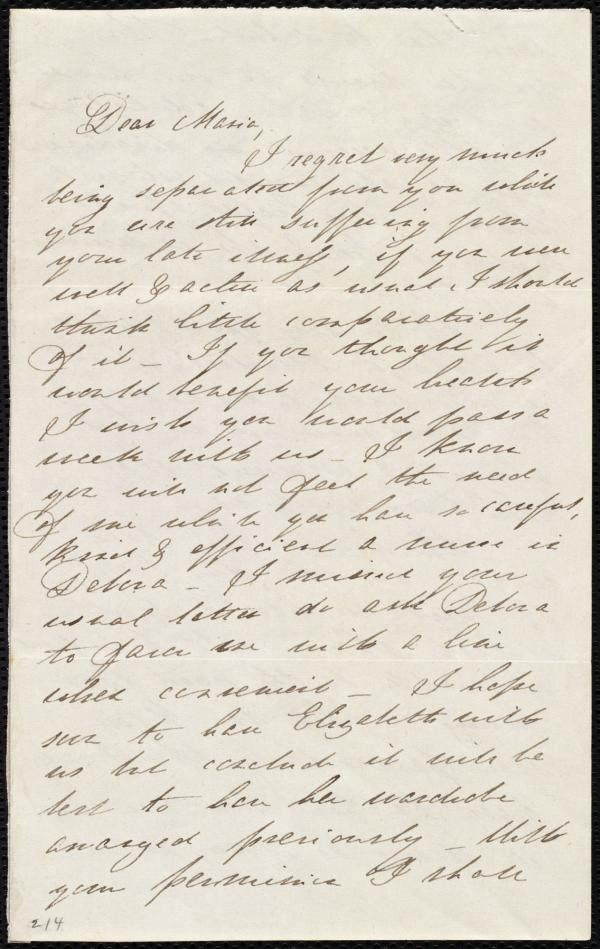 Dear Maria,
I regret very much
being separated from you while
you are still suffering from
your late illness, if you were
well & active as usual I should
think little comparatively
of it - If you thought it
would benefit your health
I wish you would pass a
week with us - I know
you will not feel the need
of me while you have so careful,
kind & efficient a nurse in
Debora - I missed your
usual letter do ask Debora
to favor me with a line
when convenient - I hope
soon to have Elizabeth with
us but conclude it will be
best to have her wardrobe
arranged previously - With
your permission I shall
214